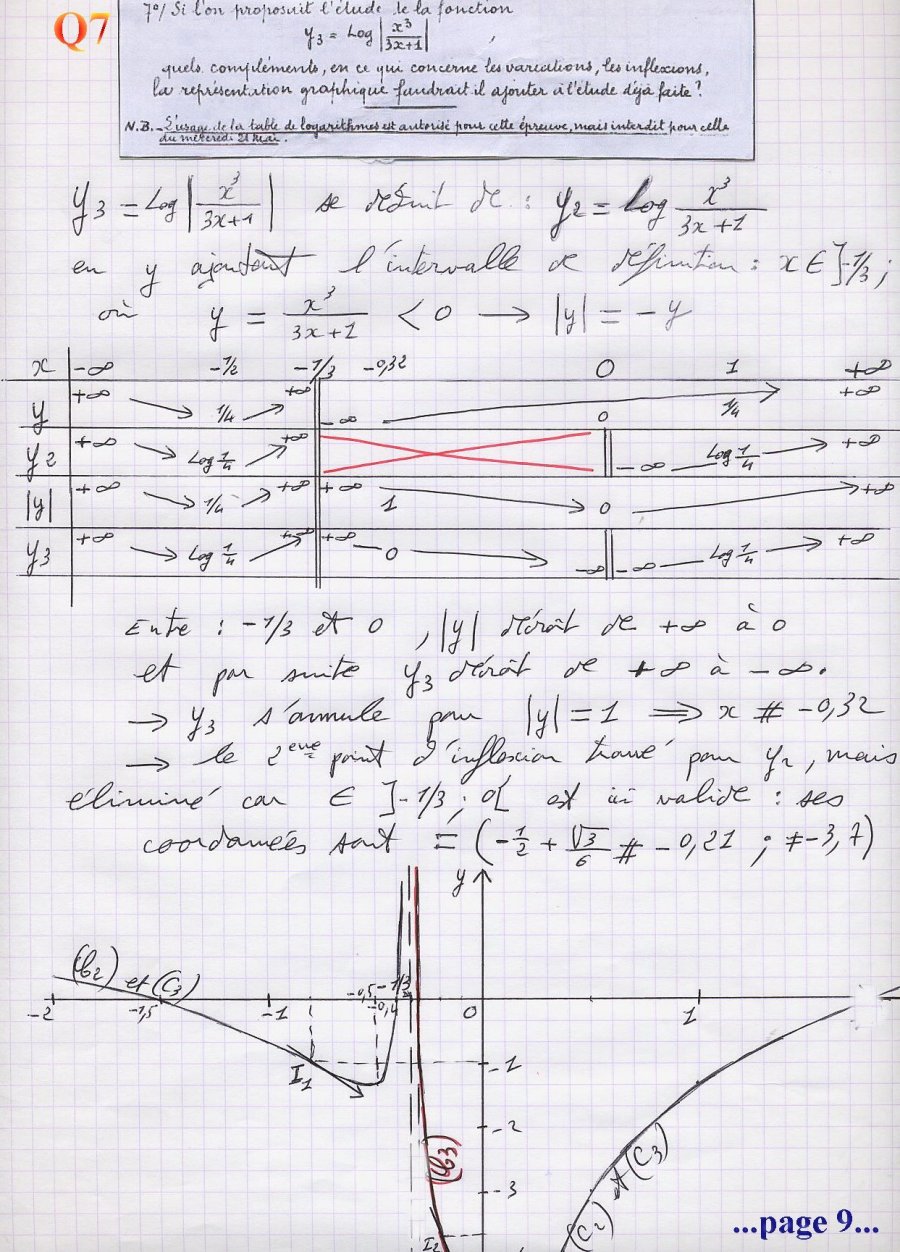 Q7
7°/ Si l'on proposait l'étude de la fonction
y3 = Log |x³/(3x+1)| ,
quels compléments, en ce qui concerne les variations, les inflexions,
la représentation graphique faudrait il ajouter à l'étude déjà faite ?
N.B. - L'usage de la table de logarithmes est autorisé pour cette épreuve, mais interdit pour celle
du mercredi 21 Mai.
y3 = Log |x³/(3x+1)| se déduit de : y2 = Log x³/(3x+1)
en y ajoutant l'intervalle de définition : x ∈ ]-1/3 ;
où y = x³/(3x+1) < 0 → |y| = -y
x -∞ -1/2 -1/3 -0,32 0 1 +∞
y +∞ 1/4 +∞ -∞ 0 1/4 +∞
y2 +∞ Log 1/4 +∞ -∞ Log 1/4 +∞
|y| +∞ 1/4 +∞ +∞ 1 0 +∞
y3 +∞ Log 1/4 +∞ +∞ 0 -∞ -∞ Log 1/4 +∞
Entre : -1/3 et 0 , |y| décroît de +∞ à 0
et par suite y3 décroît de +∞ à -∞.
→ y3 s'annule pour |y| = 1 ⟹ x # -0,32
→ le 2eme point d'inflexion trouvé pour y2, mais
éliminé car ∈ ]-1/3 ; 0[ est ici valide : ses
coordonnées sont = (-1/2 + √3/6 # -0,21 ; ≠ -3,7)
y
(C2) et (C3)
-2 -1,5 -1 -0,5 -0,4 -1/3 0 1
I1
-1
-2
(C3)
-3
(C2) et (C3)
I2
...page 9...